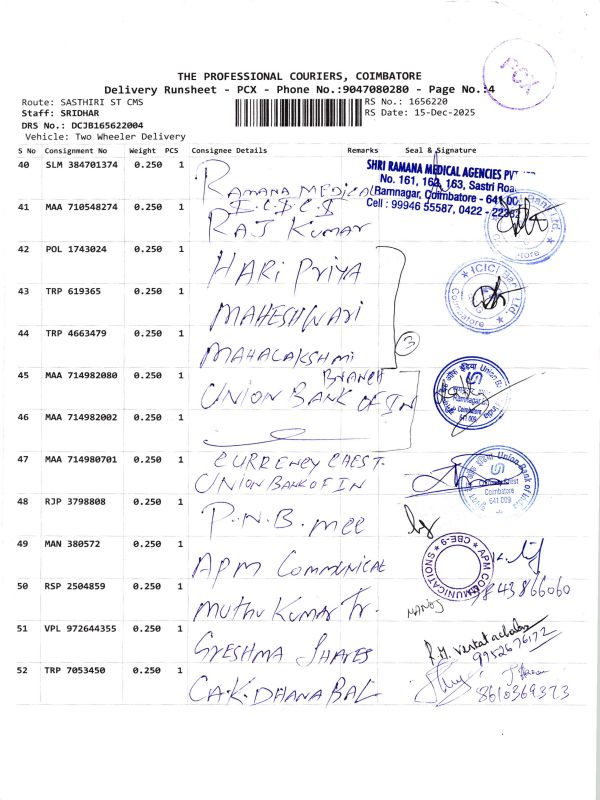 PCX
THE PROFESSIONAL COURIERS, COIMBATORE
Delivery Runsheet - PCX - Phone No.:9047080280 - Page No.:4
Route: SASTHIRI ST CMS
RS No.: 1656220
Staff: SRIDHAR
RS Date: 15-Dec-2025
DRS No.: DCJB165622004
Vehicle: Two Wheeler Delivery
S No Consignment No Weight PCS Consignee Details Remarks Seal & Signature
40 SLM 384701374 0.250 1 RAMANA MEDICAL
SHRI RAMANA MEDICAL AGENCIES PVT
No. 161, 162, 163, Sastri Road
Ramnagar, Coimbatore - 641 00
Cell : 99946 55587, 0422 -
41 MAA 710548274 0.250 1 I.C.I.C.I
RAJ KUMAR
42 POL 1743024 0.250 1 HARI PRIYA
43 TRP 619365 0.250 1 MAHESHWARI
ICICI Bank Ltd.
Coimbatore
44 TRP 4663479 0.250 1 MAHALAKSHMI
3
45 MAA 714982080 0.250 1 BRANCH
UNION BANK OF IN
Ramnagar
Coimbatore
641 009
46 MAA 714982002 0.250 1
47 MAA 714980701 0.250 1 CURRENCY CHEST.
UNION BANK OF IN
Union Bank of India
Currency Chest
Coimbatore
641 009
48 RJP 3798808 0.250 1 P.N.B. MEE
49 MAN 380572 0.250 1 APM COMMUNICAT
APM COMMUNICATIONS
CBE-9
50 RSP 2504859 0.250 1 MUTHU KUMAR Tr.
MANOJ
9843866060
51 VPL 972644355 0.250 1 GRESHMA SHARES
R.M. Venkatachalam
9952676172
52 TRP 7053450 0.250 1 CA.K.DHANA BAL
8610369373